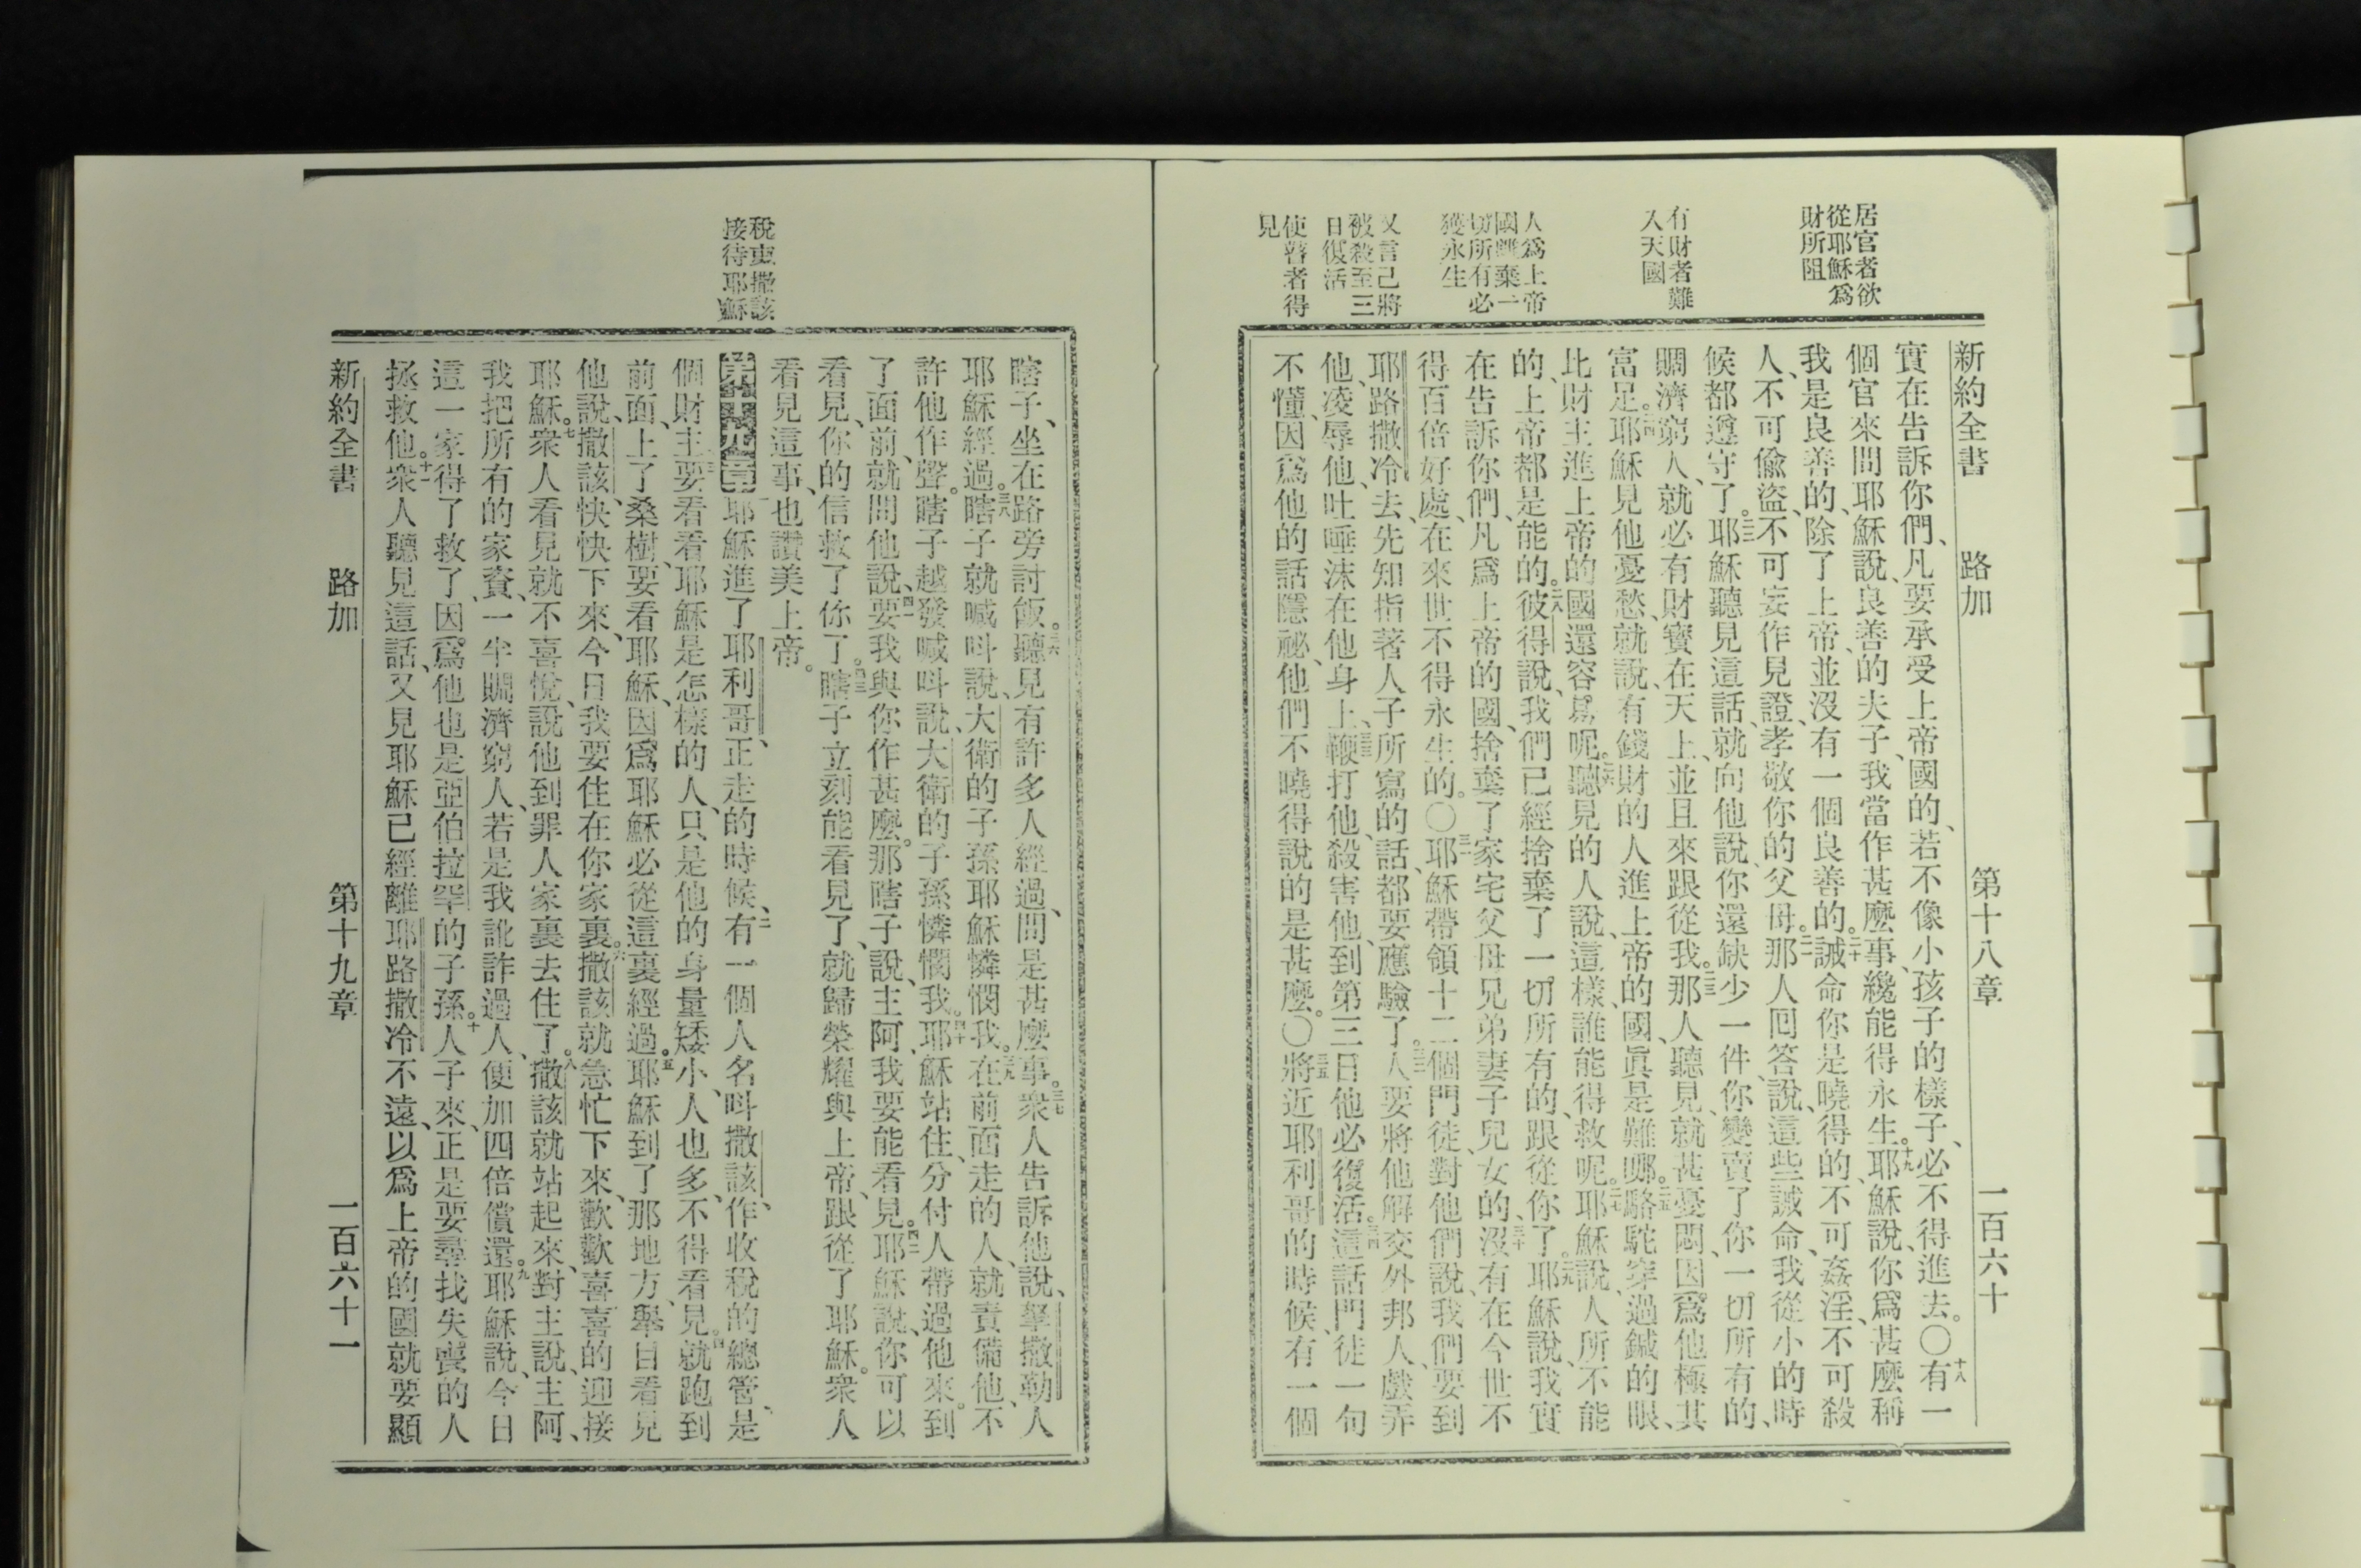 居官者欲
從耶穌爲
財所阻
有財者難
入天國
人爲上帝
國雖棄一
切所有必
獲永生
又言己將
被殺至三
日復活
使瞽者得
見
新約全書 路加 第十八章 一百六十
實在告訴你們、凡要承受上帝國的、若不像小孩子的樣子、必不得進去。〇十八有一
個官來問耶穌說、良善的夫子、我當作甚麼事、纔能得永生。十九耶穌說、你爲甚麼稱
我是良善的、除了上帝、並沒有一個良善的。二十誡命你是曉得的、不可姦淫、不可殺
人、不可偸盜、不可妄作見證、孝敬你的父母。二一那人回答說、這些誡命、我從小的時
候都遵守了。二二耶穌聽見這話、就向他說、你還缺少一件、你變賣了你一切所有的、
賙濟窮人、就必有財寶在天上、並且來跟從我。二三那人聽見、就甚憂悶、因爲他極其
富足。二四耶穌見他憂愁、就說、有錢財的人進上帝的國、眞是難哪。二五駱駝穿過鍼的眼、
比財主進上帝的國還容易呢。二六聽見的人說、這樣、誰能得救呢。二七耶穌說、人所不能
的、上帝都是能的。二八彼得說、我們已經捨棄了一切所有的、跟從你了。二九耶穌說、我實
在告訴你們、凡爲上帝的國、捨棄了家宅父母兄弟妻子兒女的、三十沒有在今世不
得百倍好處、在來世不得永生的。〇三一耶穌帶領十二個門徒、對他們說、我們要到
耶路撒冷去、先知指著人子所寫的話、都要應驗了。三二人要將他解交外邦人、戲弄
他、凌辱他、吐唾沫在他身上、三三鞭打他、殺害他、到第三日他必復活。三四這話門徒一句
不懂、因爲他的話隱祕、他們不曉得說的是甚麼。〇三五將近耶利哥的時候、有一個
稅吏撒該
接待耶穌
瞎子、坐在路旁討飯。三六聽見有許多人經過、問是甚麼事。三七衆人告訴他說、拏撒勒人
耶穌經過。三八瞎子就喊呌說、大衛的子孫耶穌憐憫我。三九在前面走的人、就責備他、不
許他作聲。瞎子越發喊呌說、大衛的子孫憐憫我。四十耶穌站住、分付人帶過他來。到
了面前、就問他說、四一要我與你作甚麼。那瞎子說、主阿、我要能看見。四二耶穌說、你可以
看見、你的信救了你了。四三瞎子立刻能看見了、就歸榮耀與上帝、跟從了耶穌。衆人
看見這事、也讚美上帝。
第十九章一耶穌進了耶利哥、正走的時候、二有一個人名呌撒該、作收稅的總管、是
個財主、三要看看耶穌是怎樣的人、只是他的身量矮小、人也多、不得看見。四就跑到
前面、上了桑樹、要看耶穌、因爲耶穌必從這裏經過。五耶穌到了那地方、舉目看見
他、說、撒該、快快下來、今日我要住在你家裏。六撒該就急忙下來、歡歡喜喜的迎接
耶穌。七衆人看見就不喜悅、說他到罪人家裏去住了。八撒該就站起來、對主說、主阿、
我把所有的家資、一半賙濟窮人、若是我訛詐過人、便加四倍償還。九耶穌說、今日
這一家得了救了、因爲他也是亞伯拉罕的子孫。十人子來、正是要尋找失喪的人
拯救他。十一衆人聽見這話、又見耶穌已經離耶路撒冷不遠、以爲上帝的國就要顯
新約全書 路加 第十九章 一百六十一